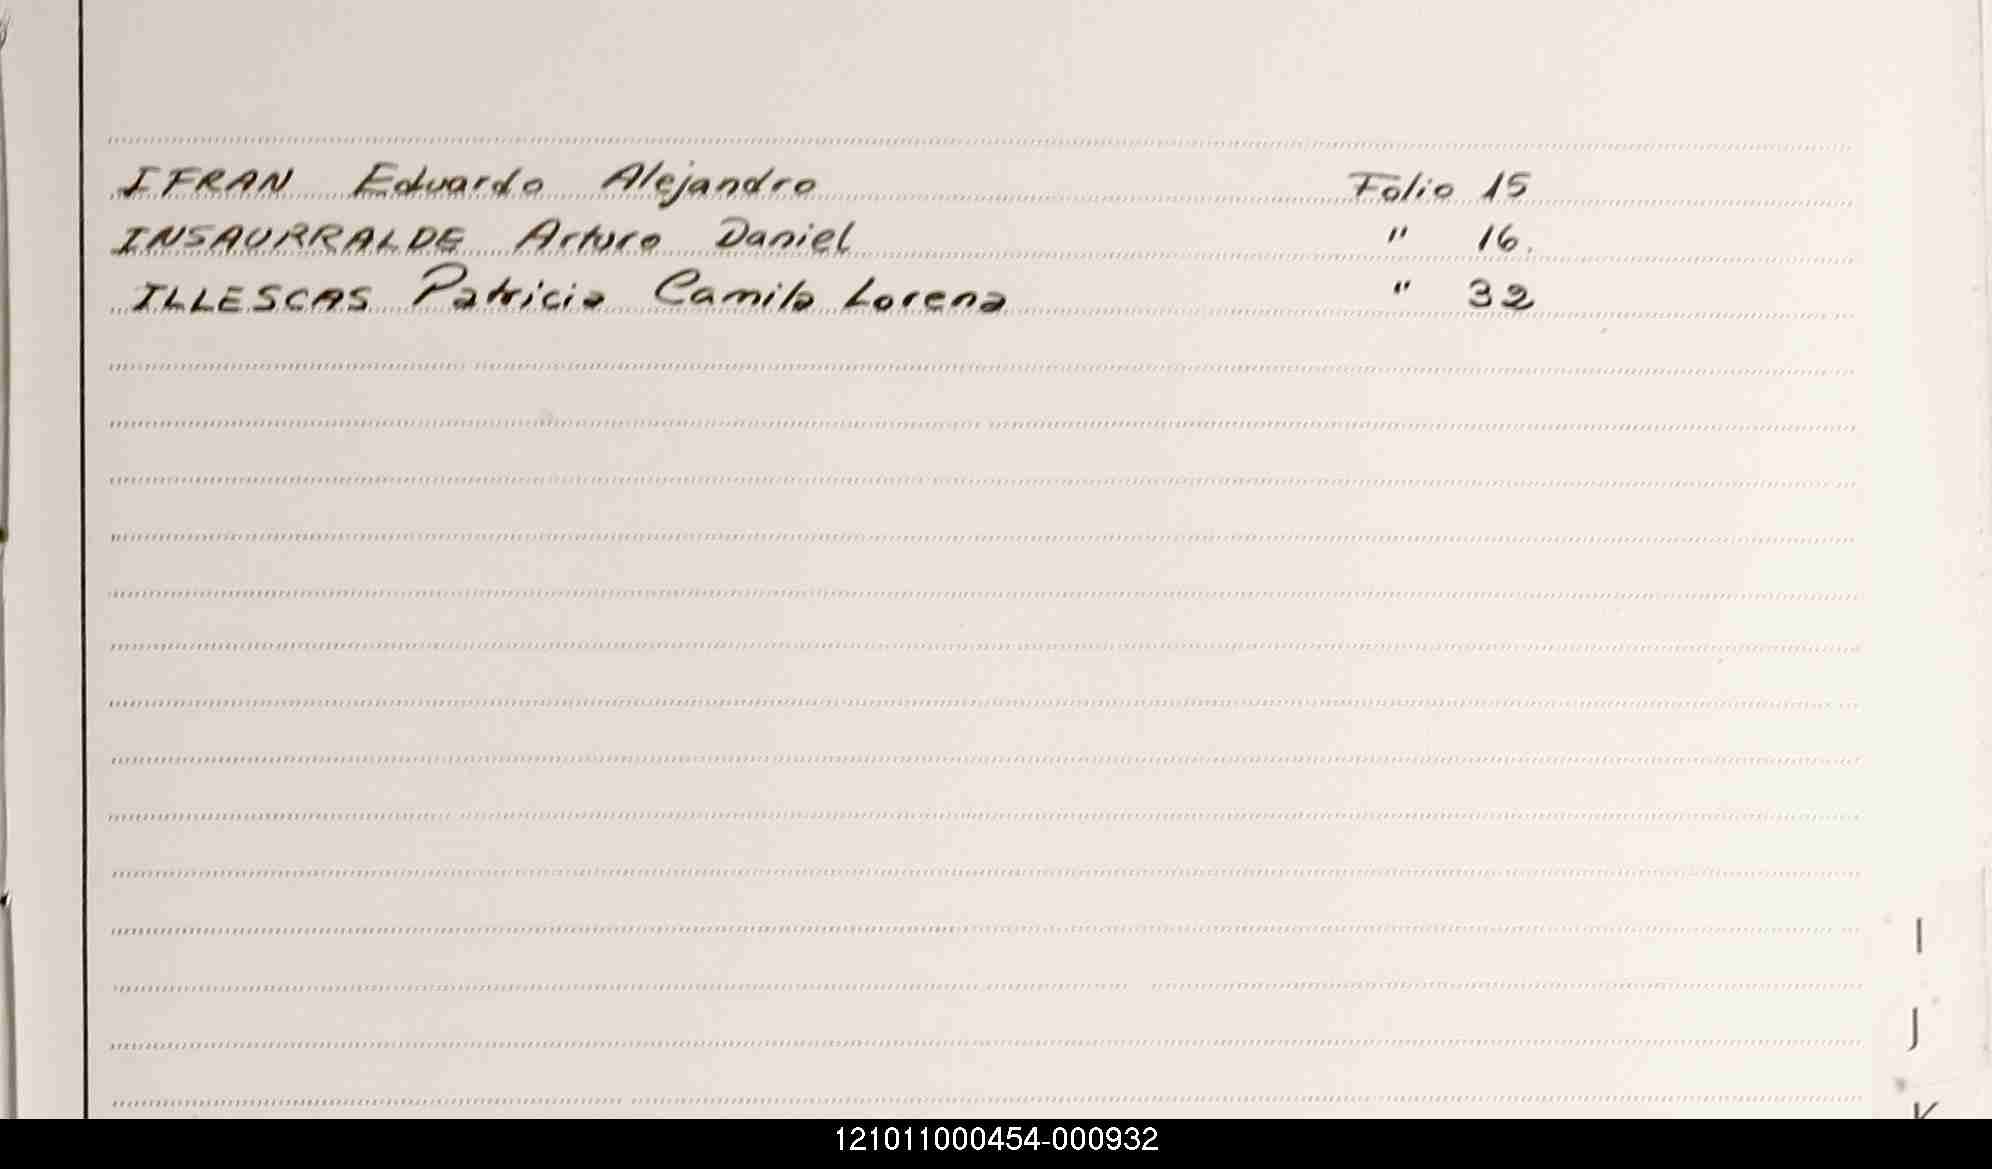 IFRAN Eduardo Alejandro Folio 15
INSAURRALDE Arturo Daniel " 16.
ILLESCAS Patricia Camila Lorena " 32
I
J
K
121011000454-000932